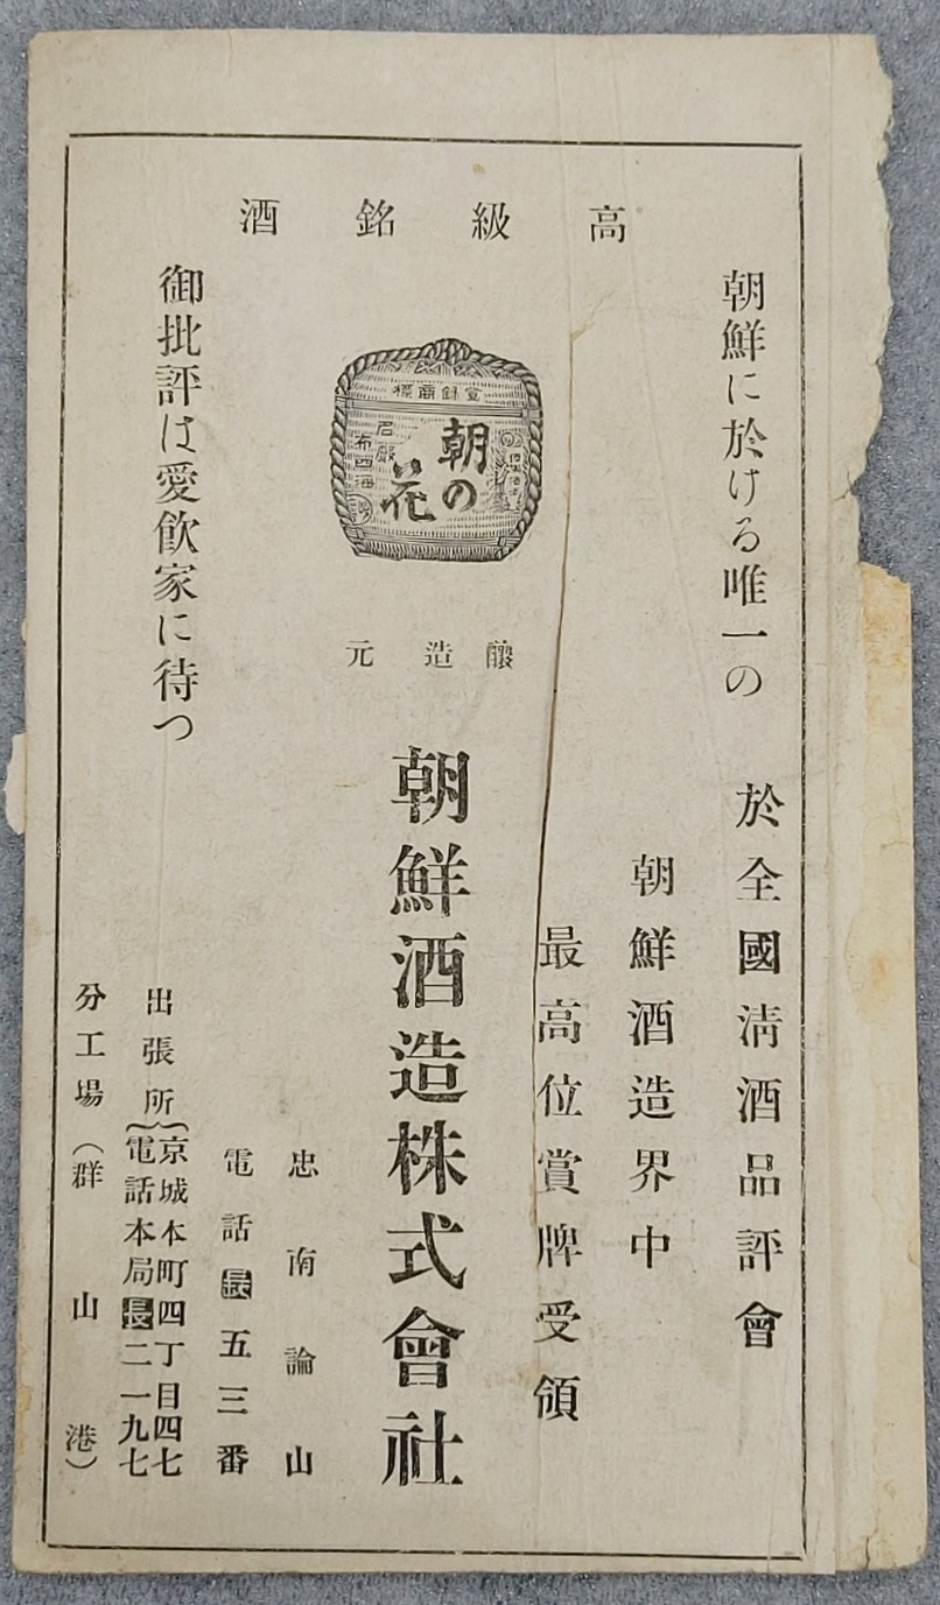 朝鮮に於ける唯一の
高級銘酒
於全國淸酒品評會
朝鮮酒造界中
最高位賞牌受領
登録商標
朝の
花
釀造元
朝鮮酒造株式會社
忠南論山
電話長五三番
御批評は愛飮家に待つ
出張所
京城本町四丁目四七
電話本局長二一九七
分工場(群山港)